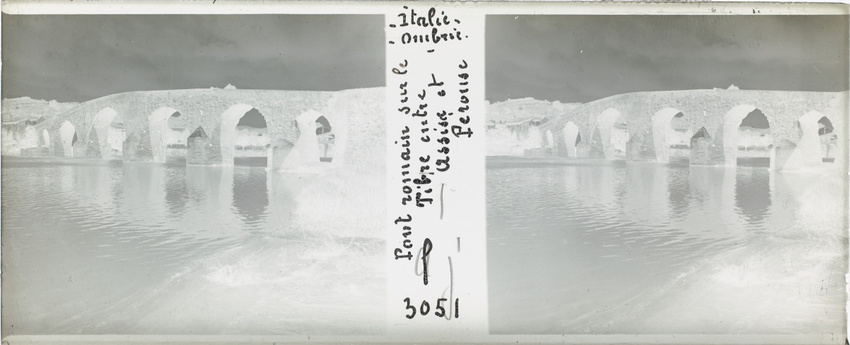 Italie
Ombrie
Pont romain sur le
Tibre entre
Assise et
Perouse
3051